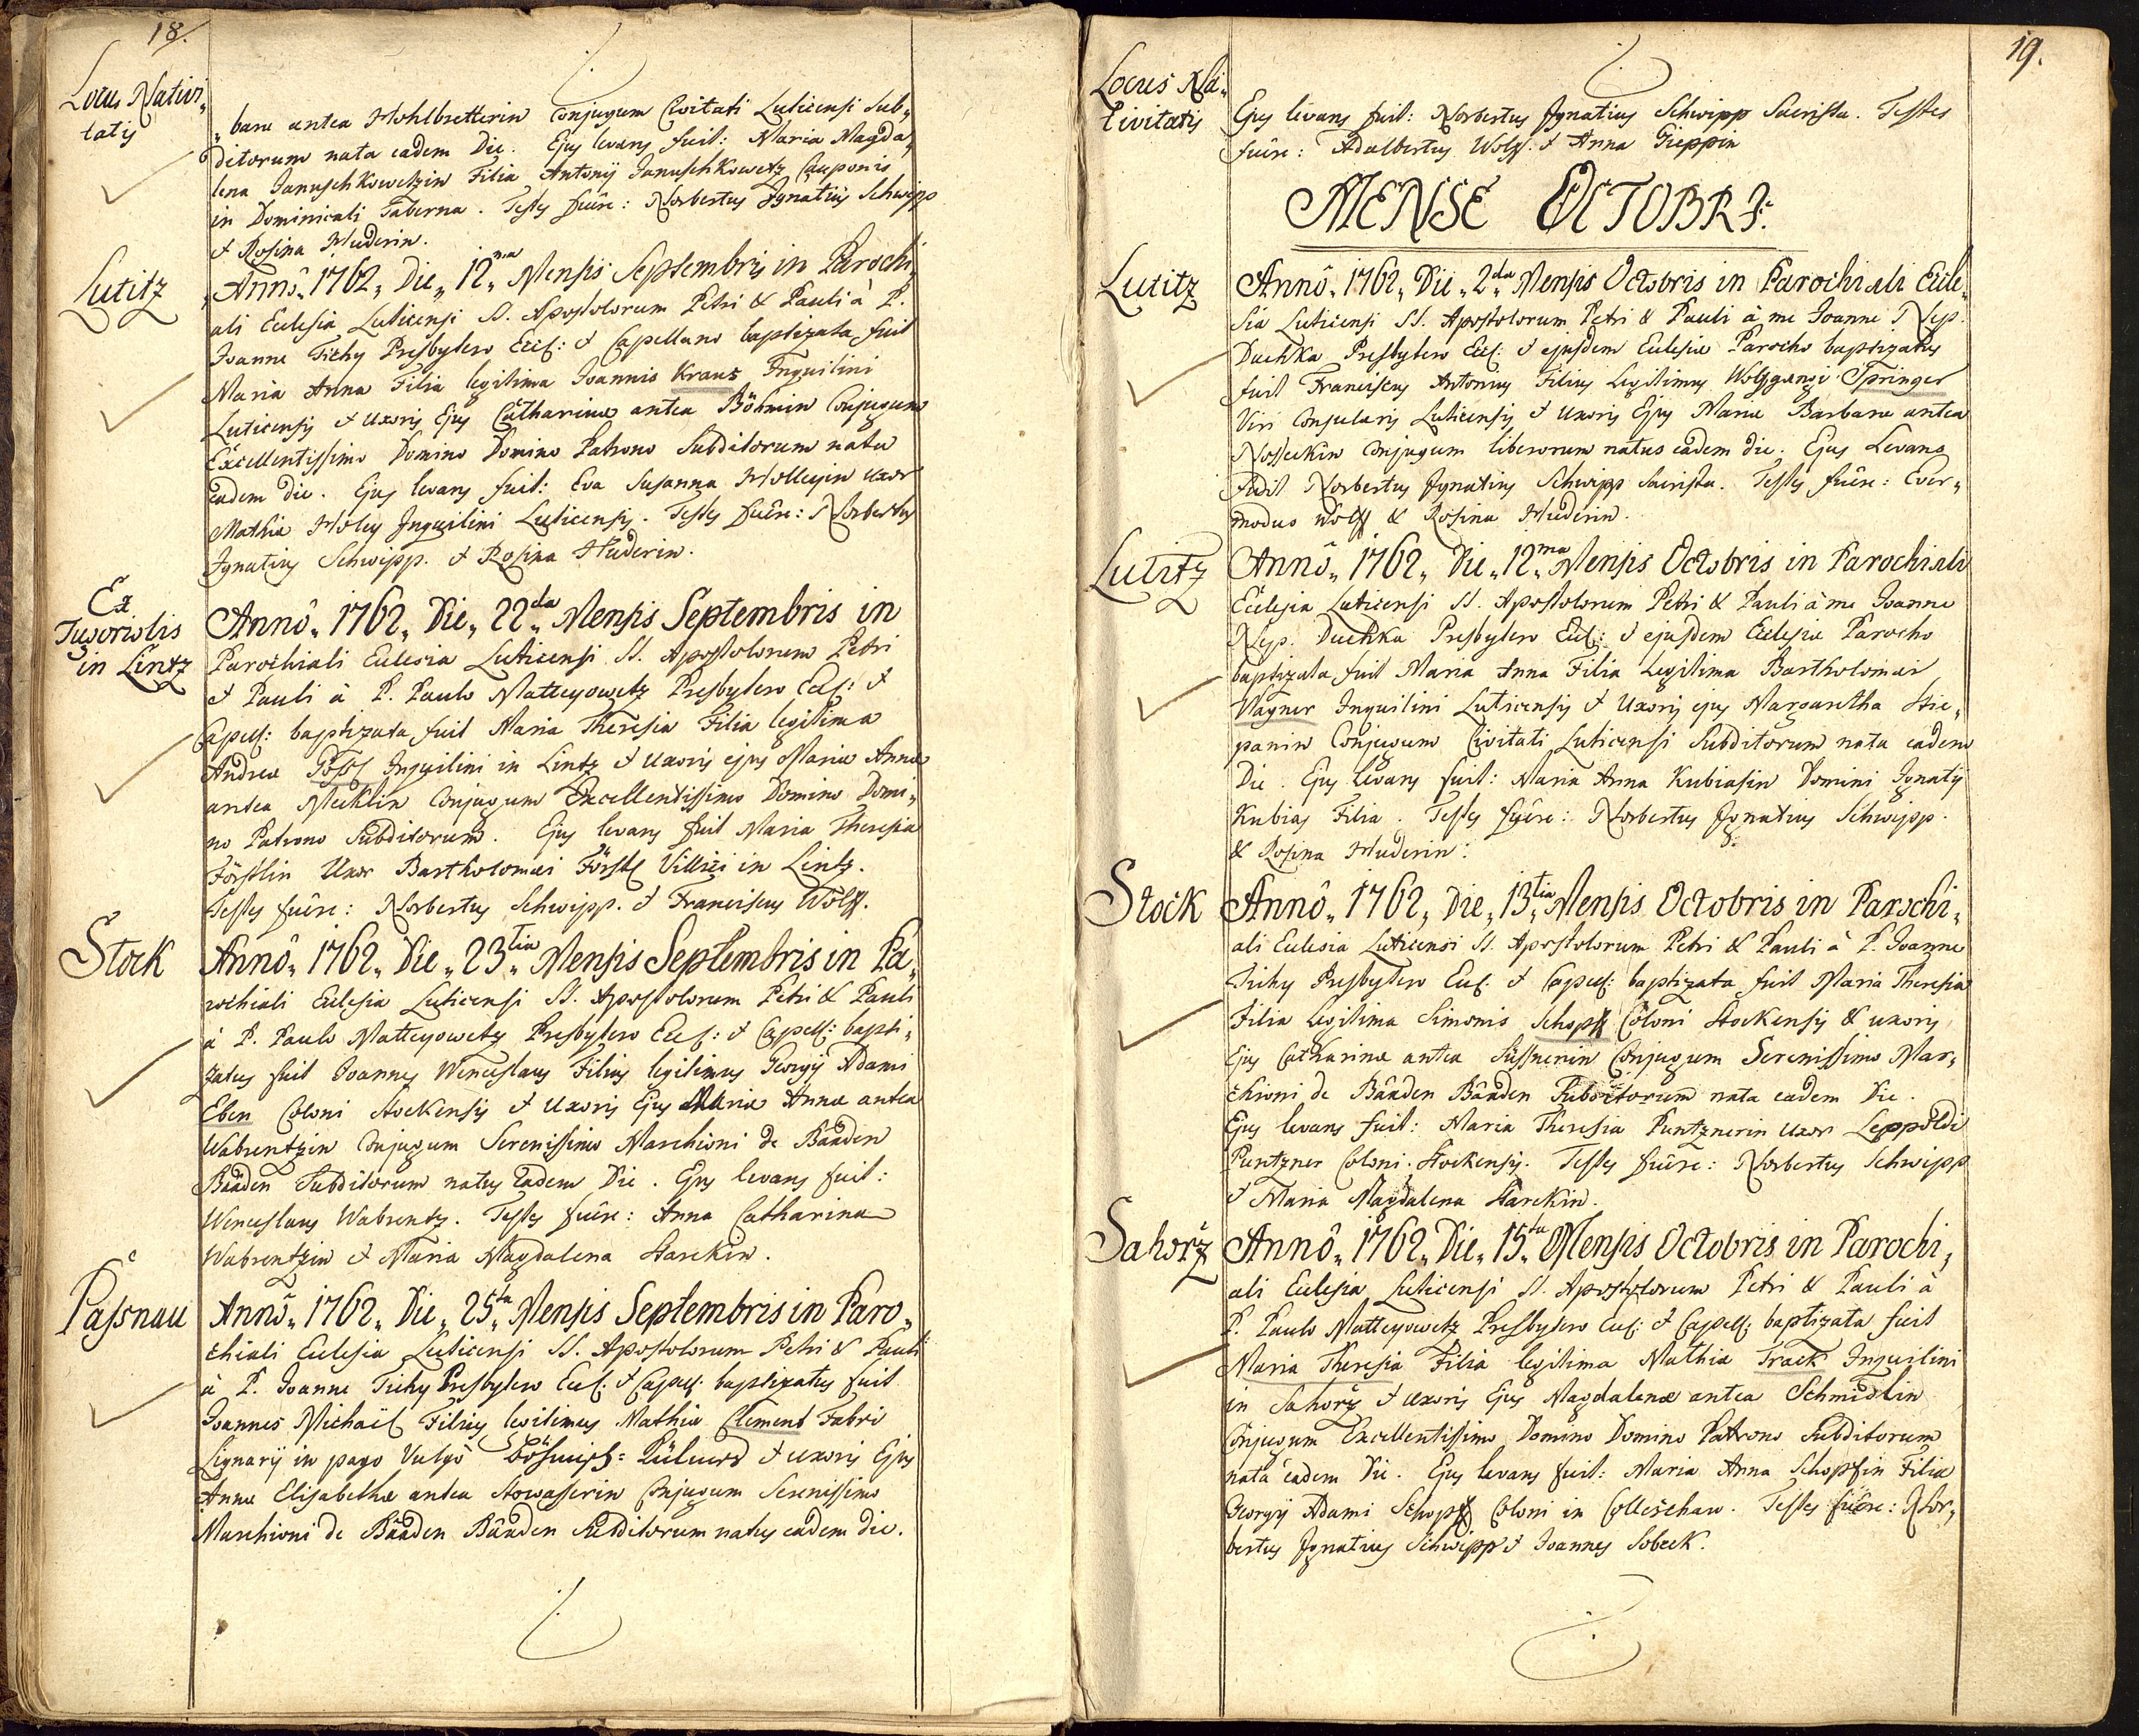 18.
Locus Nativi„
tatis
„bara antea Hohlbretterin Conjugum Civitati Luticensi Sub„
ditorum nata eadem Die. Ejus levans fuit: Maria Magda„
lena Januschkowetzin Filia Antonij Januschkowetz Cauponis
in Dominicali Taberna. Testes fuêre: Norbertus Jgnatius Schwipp
& Rosina Huderin.
Lutitz
Annô„ 1762„ Die„ 12ma„ Mensis Septembris in Parochi„
ali Ecclesia Luticensi SS. Apostolorum Petri & Pauli à P.
Joanne Tichy Presbytero Eccl: & Capellano baptizata fuit
Maria Anna Filia legitima Joannis Kraus Inquilini
Luticensis & Uxoris Ejus Catharinæ antea Böhmin Conjugum
Excellentissimo Domino Domino Patrono Subditorum nata
eadem die. Ejus levans fuit: Eva Susanna Holleyin uxor
Mathiæ Holey Jnquilini Luticensis. Testes fuêre: Norbertus
Jgnatius Schwipp. & Rosina Huderin.
Ex
in Lintz
Annô„ 1762„ Die„ 22da„ Mensis Septembris in
Parochiali Ecclesia Luticensi SS. Apostolorum Petri
& Pauli à P. Paulo Matteyowetz Presbytero Eccl: &
Capell: baptizata fuit Maria Theresia Filia legitima
Andreæ Inquilini in Lintz & uxoris ejus Mariæ Annæ
antea Mecklin Conjugum Excellentissimo Domino Domi„
no Patrono Subditorum. Ejus levans fuit Maria Theresia
Förstlin Uxor Bartholomæi Förstl Villici in Lintz.
Testes fuêre: Norbertus Schwipp. & Franciscus Wolff.
Stock
Annô„ 1762„ Die„ 23tia„ Mensis Septembris in Pa„
rochiali Ecclesia Luticensi SS. Apostolorum Petri & Pauli
à P. Paulo Matteyowetz Presbytero Eccl: & Capell: bapti„
zatus fuit Joannes Wenceslaus Filius legitimus Georgij Adami
Eben Coloni Stockensis & Uxoris Ejus Mariæ Annæ antea
Wabrentzin Conjugum Serenissimo Marchioni de Bâaden
Bâaden Subditorum natus eadem Die. Ejus levans fuit:
Wenceslaus Wabrentz. Testes fuêre: Anna Catharina
Wabrentzin & Maria Magdalena Starckin.
Passnau
Annô„ 1762„ Die„ 25ta„ Mensis Septembris in Paro„
chiali Ecclesia Luticensi SS. Apostolorum Petri & Pauli
à P. Joanne Tichy Presbytero Eccl: & Capell: baptizatus fuit
Joannes Michaël Filius legitimus Mathiæ Clement Fabri
Lignarij in pago Vulgò & uxoris Ejus
Annæ Elisabethæ antea Stowasserin Conjugum Serenissimo
Marchioni de Bâaden Bâaden Subditorum natus eadem die.
19.
Locus Na„
tivitatis
Ejus levans fuit: Norbertus Jgnatius Schwipp Sacrista. Testes
fuêre: Adalbertus Wolff. & Anna Gieppin
MENSE OCTOBRI:
Lutitz
Annô„ 1762„ Die„ 2da„ Mensis Octobris in Parochiali Eccle„
sia Luticensi SS. Apostolorum Petri & Pauli à me Joanne Nep.
Duchka Presbytero Eccl: & ejusdem Ecclesiæ Parocho baptizatus
fuit Franciscus Antonius Filius Legitimus Wolfgangi Springer
Viri Consularis Luticensis & uxoris Ejus Mariæ Barbaræ antea
Nosseckin Conjugum liberorum natus eadem die. Ejus Levans
fuit Norbertus Jgnatius Schwipp Sacrista. Testes fuêre: Ever„
modus Wolff & Rosina Huderin.
Lutitz
Annô„ 1762„ Die„ 12ma„ Mensis Octobris in Parochiali
Ecclesia Luticensi SS. Apostolorum Petri & Pauli à me Joanne
Nep. Duchka Presbytero Eccl: & ejusdem Ecclesiæ Parocho
baptizata fuit Maria Anna Filia Legitima Bartholomæi
Wagner Inquilini Luticensis & Uxoris ejus Margarethæ Stie„
panin Conjugum Civitati Luticensi Subditorum nata eadem
Die. Ejus levans fuit: Maria Anna Kubiasin Domini Jgnatij
Kubias Filia. Testes fuêre: Norbertus Jgnatius Schwipp.
& Rosina Huderin.
Stock
Annô„ 1762„ Die„ 13tia„ Mensis Octobris in Parochi„
ali Ecclesia Luticensi SS. Apostolorum Petri & Pauli à P. Joanne
Tichy Presbytero Eccl: & Capell: baptizata fuit Maria Theresia
Filia Legitima Simonis Schopff Coloni Stockensis & uxoris
Ejus Catharinæ antea Süssnerin Conjugum Serenissimo Mar„
chioni de Bâaden Bâaden Subditorum nata eadem Die.
Ejus levans fuit: Maria Theresia Puntznerin uxor Leppoldi
Puntzner Coloni Stockensis. Testes fuêre: Norbertus Schwipp
& Maria Magdalena Starckin.
Sahorz
Annô„ 1762„ Die„ 15ta„ Mensis Octobris in Parochi„
ali Ecclesia Luticensi SS. Apostolorum Petri & Pauli à
P. Paulo Matteyowetz Presbytero Eccl: & Capell: baptizata fuit
Maria Theresia Filia legitima Mathiæ Track Inquilini
in Sahorz & uxoris Ejus Magdalenæ antea Schmidlin
Conjugum Excellentissimo Domino Domino Patrono Subditorum
nata eadem Die. Ejus levans fuit: Maria Anna Schopfin Filia
Georgij Adami Schopff Coloni in Colleschau. Testes fuêre: Nor„
bertus Jgnatius Schwipp & Joannes Sobeck.